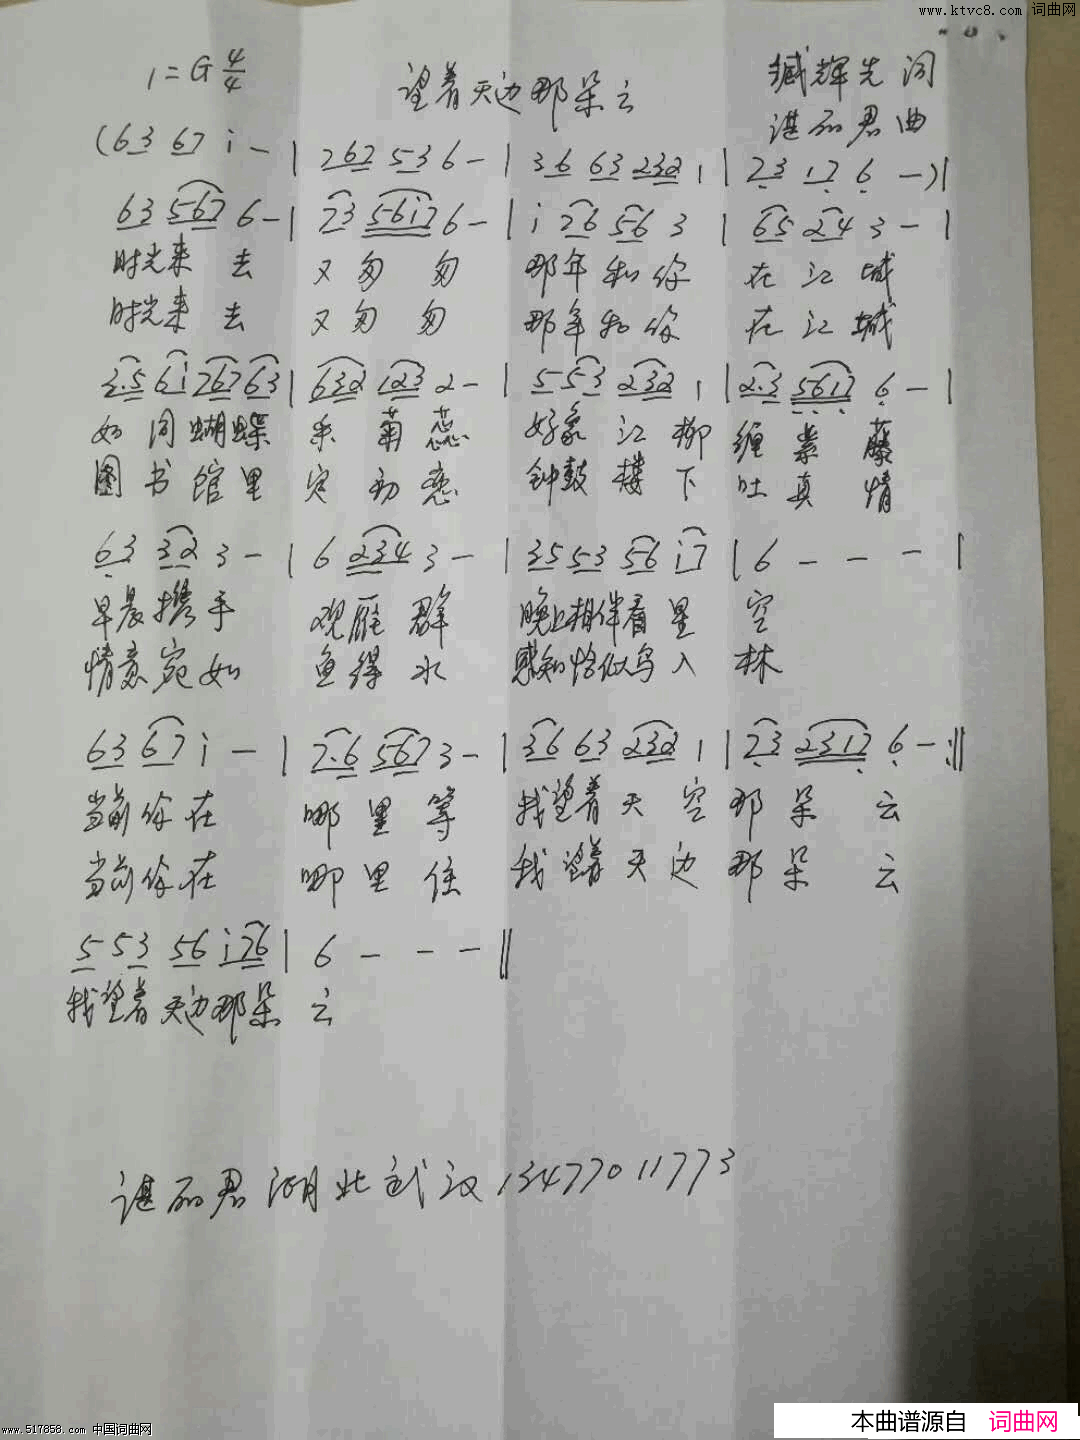 www.ktvc8.com 词曲网
1=G 4/4 望着天边那朵云 臧辉先 词
谌丽君 曲
(63 67 i - | 267 53 6 - | 36 63 232 1 | 23 17 6 - )|
63 567 6 - | 23 56i7 6 - | i 26 56 3 | 65 24 3 - |
时光来去 又匆匆 那年和你 在江城
时光来去 又匆匆 那年和你 在江城
3.5 6i 767 63 | 632 123 2 - | 5 53 232 1 | 2.3 5617 6 - |
如同蝴蝶 采菊蕊 好象江柳 缠紫藤
图书馆里 定初恋 钟鼓楼下 吐真情
63 32 3 - | 6 234 3 - | 35 53 56 i7 | 6 - - - |
早晨携手 观雁群 晚上相伴看星空
情意宛如 鱼得水 感知恰似鸟入林
63 67 i - | 7.6 567 3 - | 36 63 232 1 | 23 2317 6 - :||
当前你在 哪里等 我望着天空那朵云
当前你在 哪里住 我望着天边那朵云
5 53 56 i76 | 6 - - - ||
我望着天边那朵云
谌丽君 湖北武汉 13477011773
本曲谱源自 词曲网
www.517858.com 中国词曲网